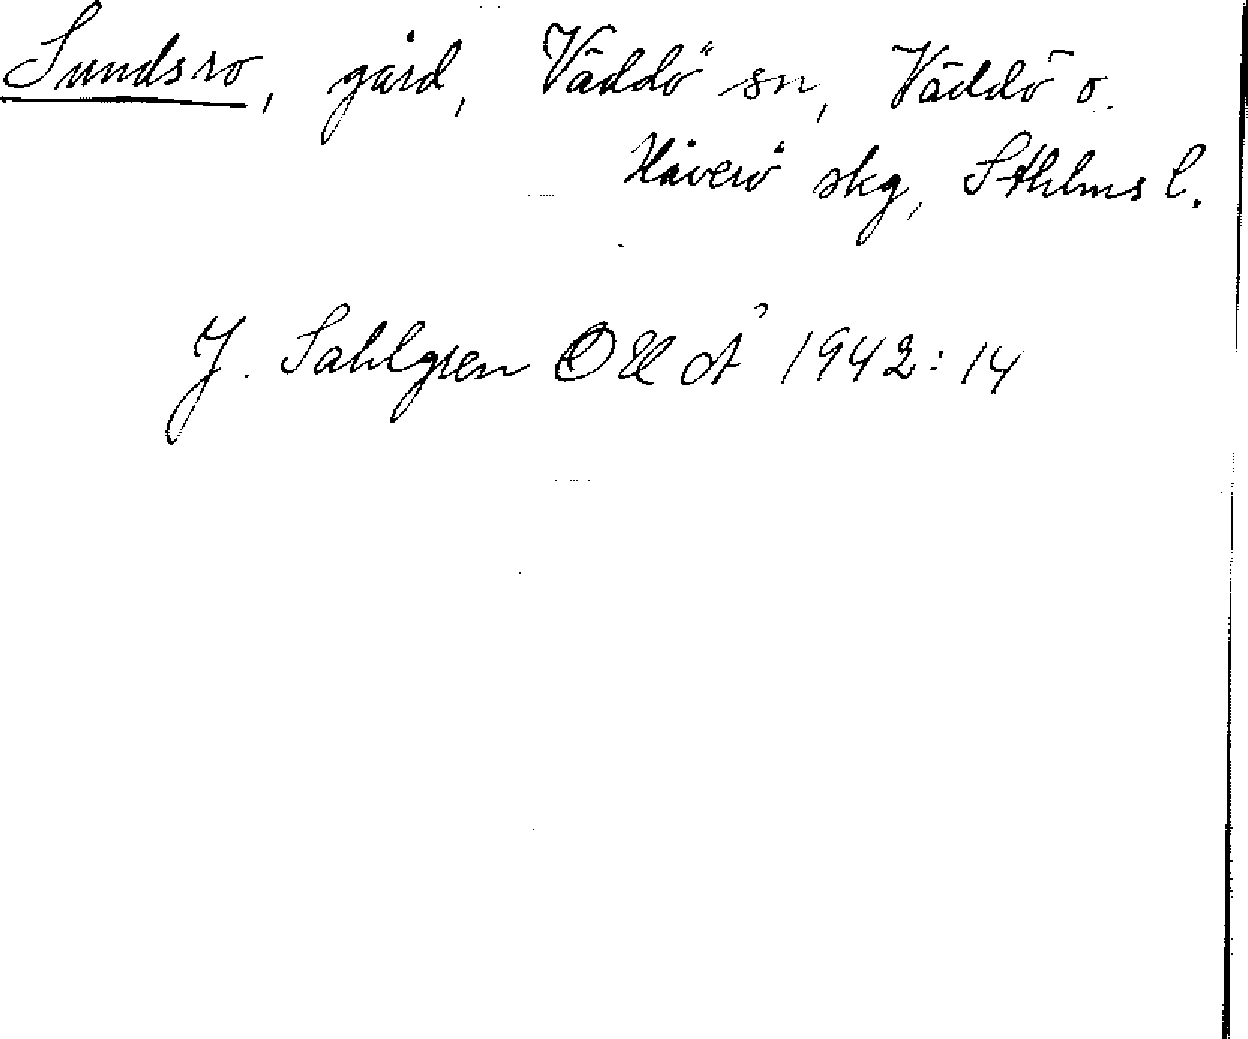 Sundsro, gård, Väddö sn, Väddö o.
Häverö skg, Sthlms l.
J. Sahlgren OUÅ 1942:14